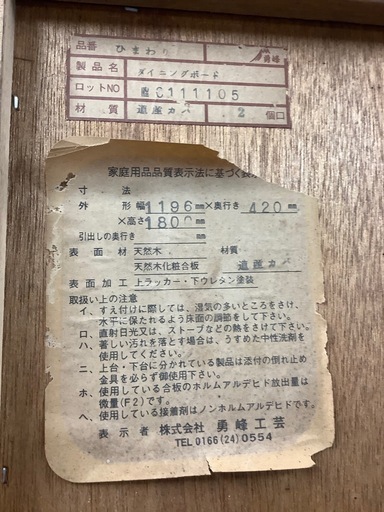 品番 ひまわり 勇峰
製品名 ダイニングボード
ロットNO 0111105
材質 道産カバ 2個口
家庭用品品質表示法に基づく表
寸法
外形 幅1196㎜×奥行き420㎜
×高さ1800㎜
引出しの奥行き ㎜
表面材 天然木 材質
天然木化粧合板 道産カバ
表面加工 上ラッカー・下ウレタン塗装
取扱い上の注意
イ、すえ付けに際しては、湿気の多いところをさけ、
水平に保たれるよう床面の調節して下さい。
ロ、直射日光又は、ストーブなどの熱をさけて下さい。
ハ、著しい汚れを落とす場合は、うすめた中性洗剤を
使用してください。
ニ、上台・下台に分かれている製品は添付の倒れ止め
金具を必らず御使用下さい。
ホ、使用している合板のホルムアルデヒド放出量は
微量(F2)です。
ヘ、使用している接着剤はノンホルムアルデヒドです。
表示者 株式会社 勇峰工芸
TEL 0166(24)0554